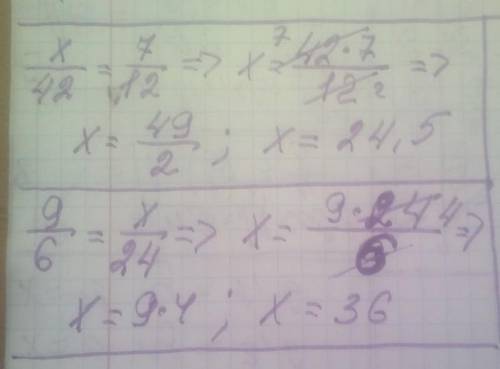 x/42 = 7/12 => x = 7 42·7/12 2 =>
x = 49/2 ; x = 24,5
9/6 = x/24 => x = 9·24 4/6 =>
x = 9·4 ; x = 36